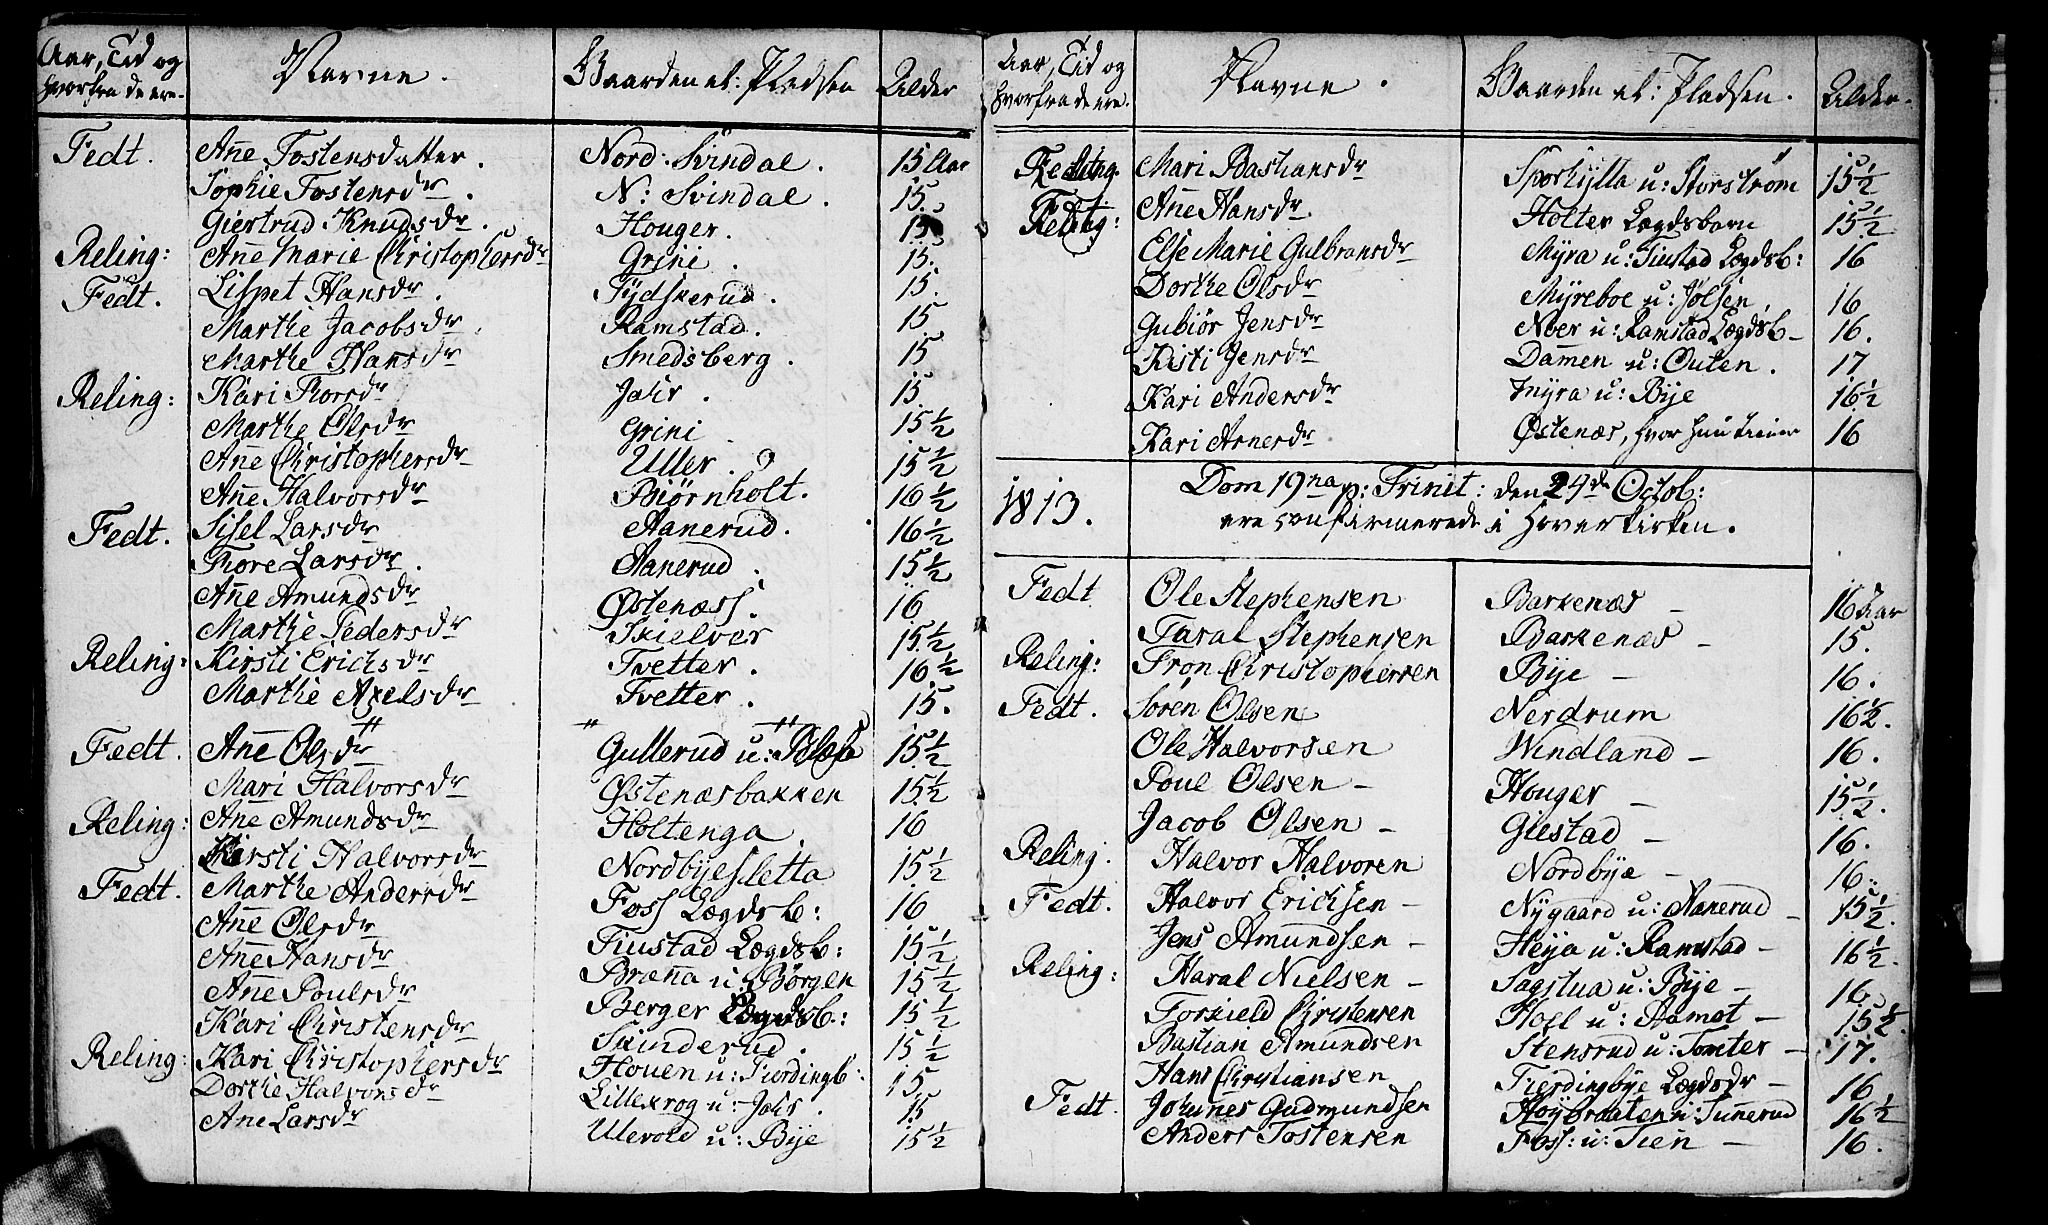 Aar, Tid og hvorfra de ere. Navne. Gaarden el: Pladsen Alder
Fedt. Ane Tostensdatter. Nord: Svindal. 15 Aar
Sophie Tostensdr. N: Svindal. 15.
Giertrud Knudsdr. Houger. 15
Reling: Ane Marie Christophersdr Grini. 15.
Fedt. Lispet Hansdr. Tydskerud. 15.
Marthe Jacobsdr. Ramstad. 15
Marthe Hansdr Smedsberg. 15
Reling: Kari Thorsdr Jahr. 15
Marthe Olsdr Grini 15 1/2
Ane Christophersdr Uller. 15 1/2
Ane Halvorsdr Biörnholt. 16 1/2
Fedt. Sisel Larsdr Aanerud. 16 1/2
Thore Larsdr. Aanerud. 15 1/2
Ane Amundsdr Østenæss. 16
Marthe Pedersdr Skielver 15 1/2
Reling: Kirsti Erichsdr Tvetter. 16 1/2
Marthe Axelsdr Tvetter. 15.
Fedt. Ane Olsdr Gullerud u: 15 1/2
Mari Halvorsdr Østenæsbakken 15 1/2
Reling: Ane Amundsdr Holtenga. 16
Kirsti Halvorsdr Nordbyesletta 15 1/2
Fedt. Marthe Andersdr Foss Lægdsb: 16
Ane Olsdr Tiustad Lægdsb: 15 1/2
Ane Hansdr Bræna u: Börgen 15 1/2
Ane Poulsdr Berger Lægdsb.: 15 1/2
Kari Christensdr Skinderud. 15 1/2
Reling: Kari Christophersdr Houen u: Fierdingb: 15
Dorthe Halvorsdr Lillekrog u: Jahr. 15
Ane Larsdr Ulevold u: Bye 15 1/2
Aar, Tid og hvorfra de ere. Navne. Gaarden el: Pladsen. Alder.
Mari Bastiansdr Sporhylla u: Storström 15 1/2
Ane Hansdr Holter Lægdsbarn 15 1/2
Else Marie Gulbransdr Myra u: Tiustad Lægdsb: 16
Dorthe Olsdr Myreboe u: Jölsen 16
Gubiör Jensdr Noer u: Ramstad Lægdsb- 16.
Kisti Jensdr Damen u: Outen. 17
Kari Andersdr Myra u: Bye 16 1/2
Kari Arnesdr Østenæs, hvor hun tiener 16
1813. Dom 19na p: Trinit: den 24de Octob:
ere confirmerede i Hover kirken.
Fedt Ole Stephensen Barkenæs - 16 Aar
Taral Stephensen Barkenæs - 15.
Reling: Tron Christophersen Bye - 16.
Fedt. Sören Olsen Nerdrum 16 1/2.
Ole Halvorsen Windland - 16.
Poul Olsen - Houger - 15 1/2.
Jacob Olsen - Giestad - 16.
Reling: Halvor Halvoren Nordbye - 16.
Fedt. Halvor Erichsen - Nygaard u: Aanerud - 15 1/2.
Jens Amundsen - Heya u: Ramstad - 16 1/2.
Reling: Haral Nielsen - Sagstua u: Bye - 16.
Torkield Christensen Hoel u: Aamot - 15 1/2.
Bastian Amundsen Stensrud u: Tomter - 17.
Hans Christiansen Fierdingbye Lægdsdr - 16
Fedt. Johanes Gudmundsen Höybraaten u: Tunerud 16 1/2
Anders Tostensen Foss: u: Tien - 16.